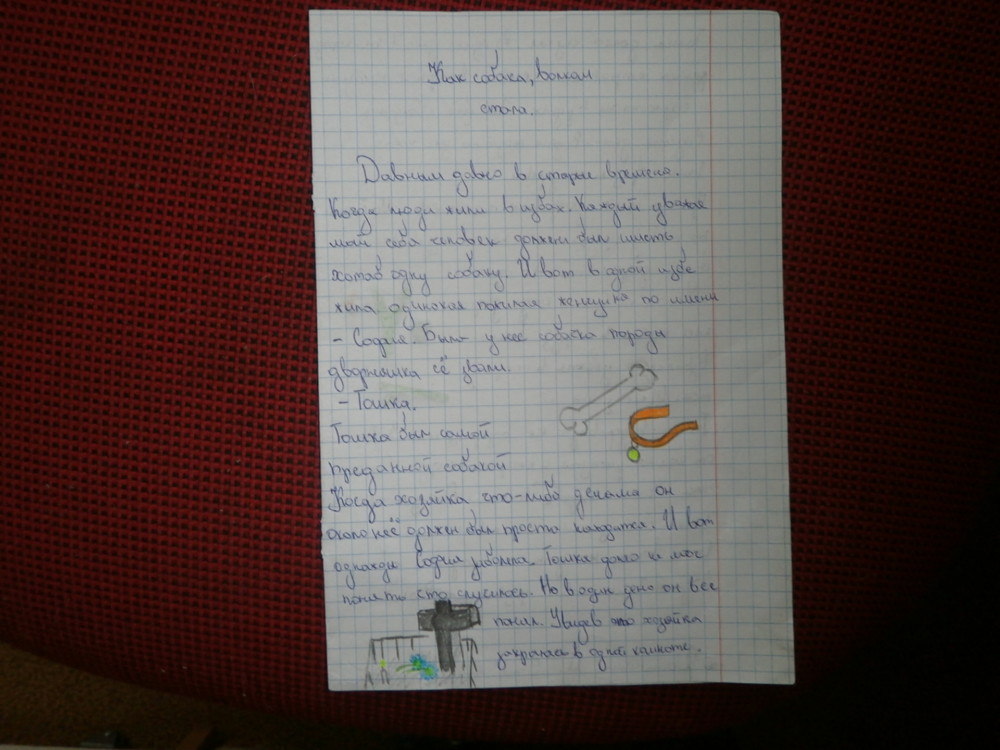 Как собака, волкам
стала.
Давным давно в старые времена.
Когда люди жили в избах. Каждый уважае
мый себя человек должен был иметь
хотяб одну собаку. И вот в одной избе
жила одинокая пожилая женщина по имени
- София. Была у неё собака породы
дворняшка её звали.
- Тошка.
Тошка был самой
преданной собакой
Когда хозяйка что-либо делала он
около неё должен был просто
однажды София заболела. Тошка долго не мог
понять что случилось. Но в один день он все
понял. Увидев это хозяйка
закрылась в одной комнате.